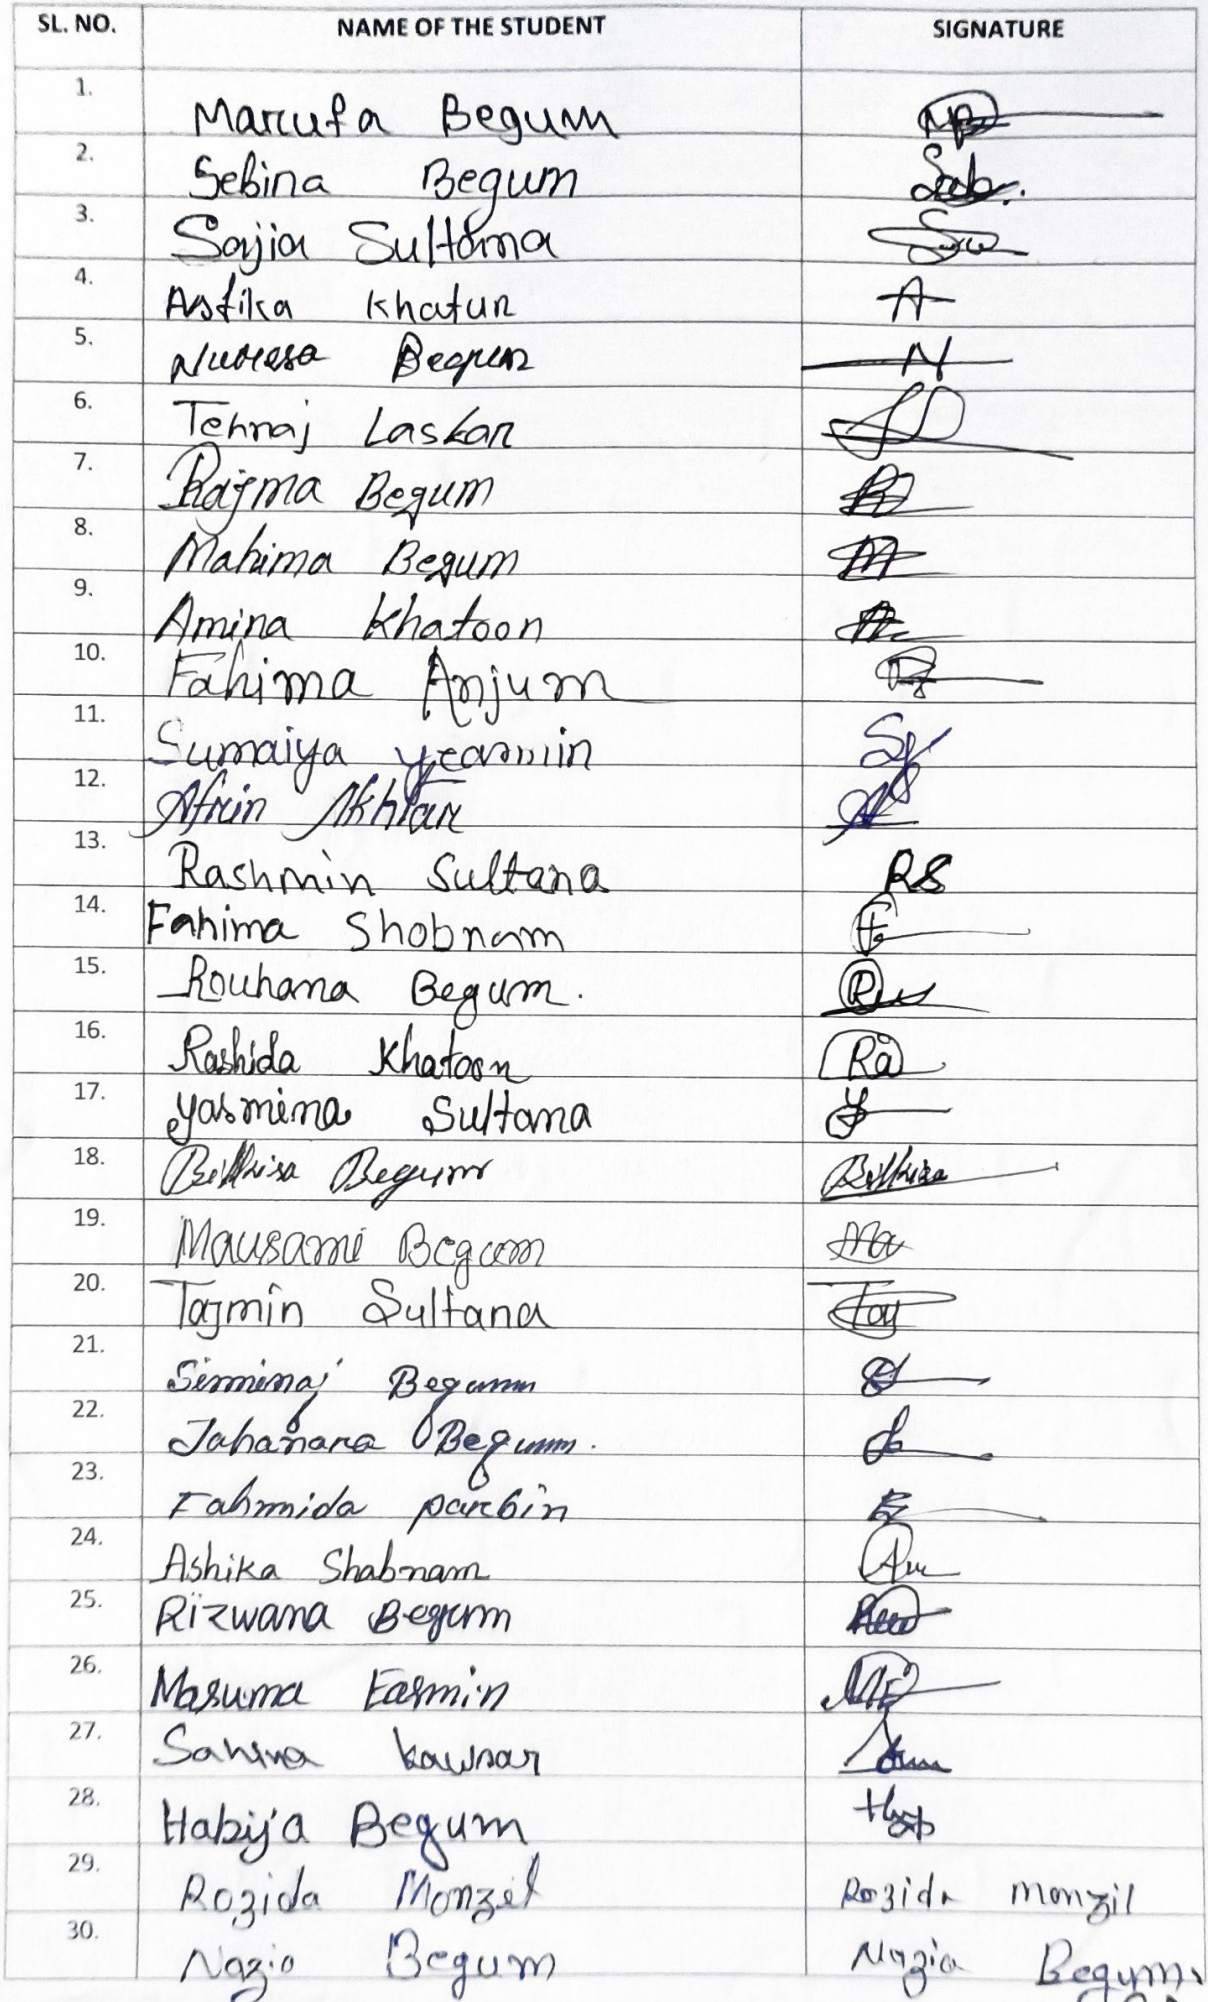 SL. NO. NAME OF THE STUDENT SIGNATURE
1. Marufa Begum MB
2. Sebina Begum
3. Sajia Sultana
4. Astika Khatun A
5. Begum N
6. Tehnaj Laskar
7. Rajma Begum
8. Mahima Begum M
9. Amina Khatoon
10. Fahima Anjum
11. Sumaiya Yeasmin Sy
12. Afrin Akhtar
13. Rashmin Sultana RS
14. Fahima Shobnam F
15. Rouhana Begum.
16. Rashida Khatoon Ra
17. Yasmina Sultana Y
18. Bilkisa Begum Bilkisa
19. Mausami Begum Ma
20. Tajmin Sultana Taj
21. Siminaj Begum
22. Jahanara Begum.
23. Fahmida parbin
24. Ashika Shabnam
25. Rizwana Begum
26. Masuma Easmin
27. kawsar
28. Habija Begum
29. Rozida Monzil Rozida monzil
30. Nazia Begum Nazia Begum.